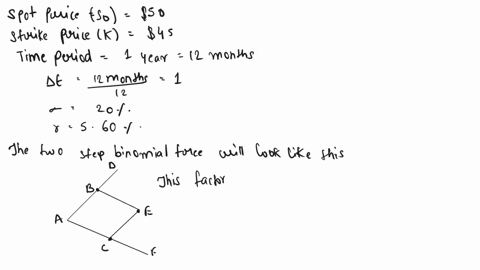 Spot price (S0) = $50
Strike Price (K) = $45
Time period = 1 year = 12 months
Δt = 12 months / 12 = 1
σ = 20 %.
r = 5.60 %.
The two step binomial force will look like this
D
This factor
B
E
A
C
F